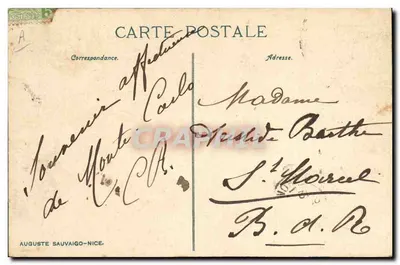 CARTE POSTALE
Correspondance.
Adresse.
Souvenir affectueux
de Monte Carlo
C. B.
Madame
Barthe
St Marcel
B. d. R
AUGUSTE SAUVAIGO-NICE.